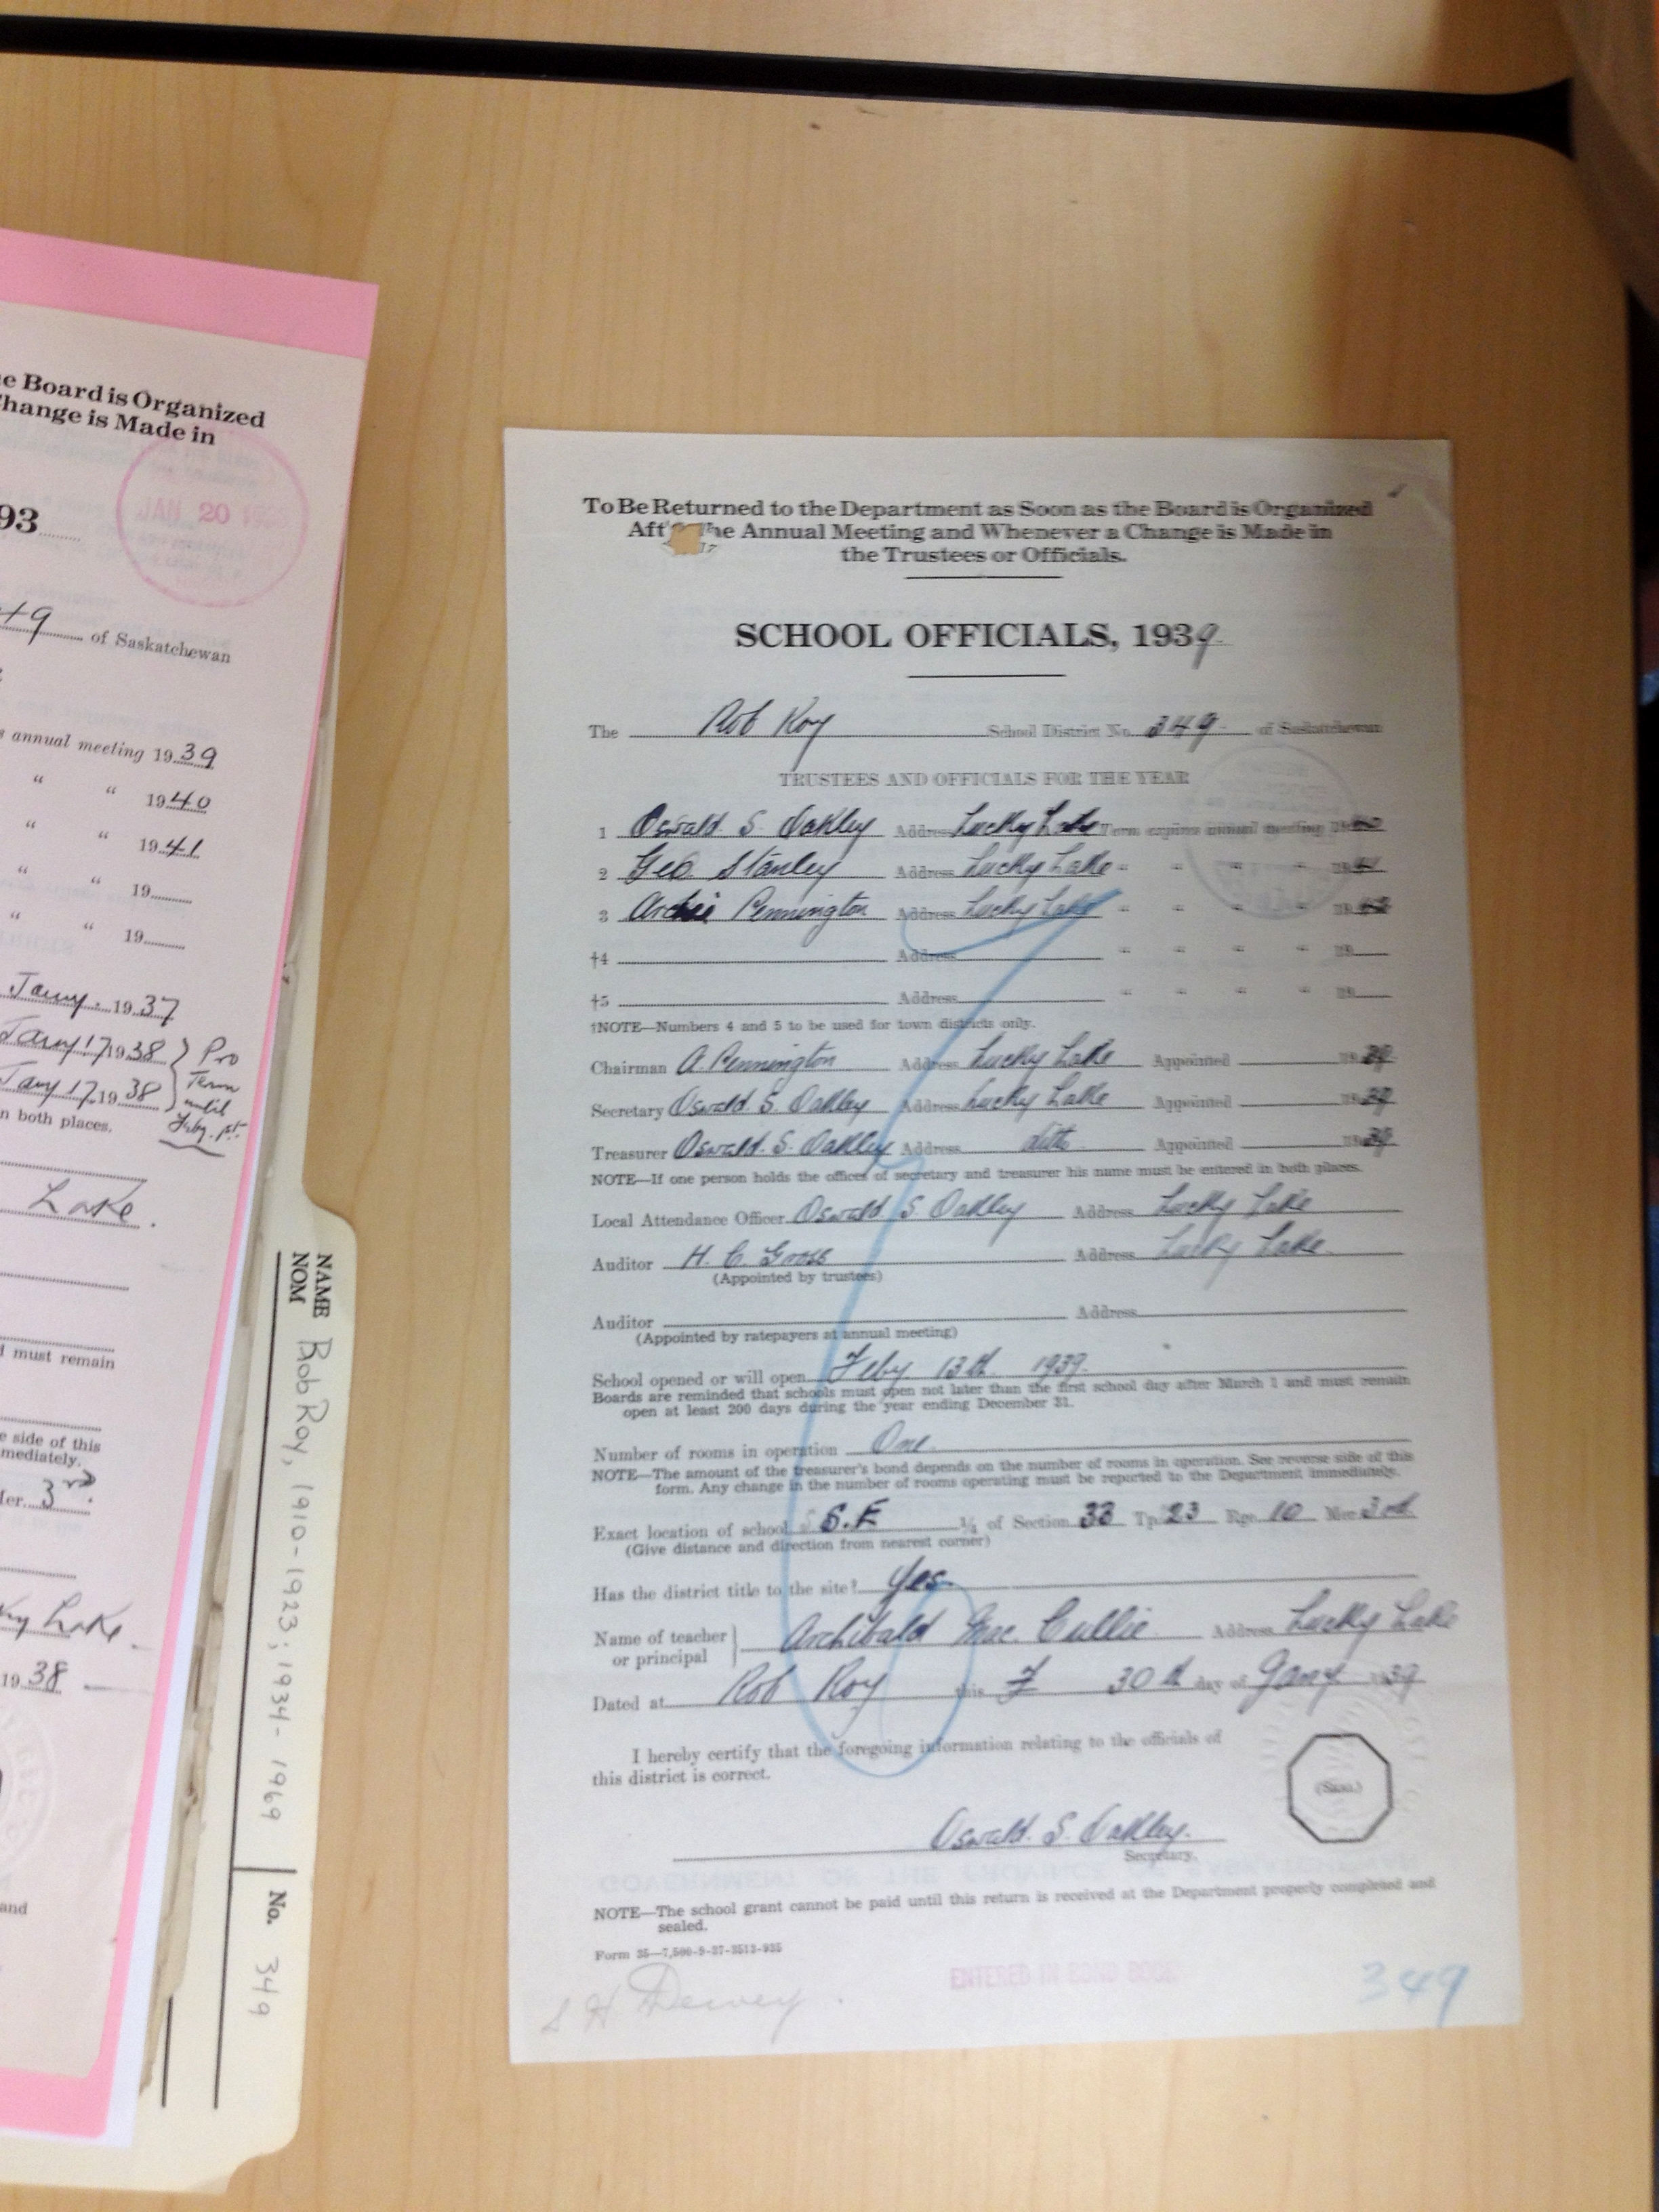 e Board is Organized
Change is Made in
JAN 20
93
49 of Saskatchewan
s annual meeting 1939
“ “ 1940
“ “ 1941
“ “ 19
“ “ 19
Jany. 1937
Jany 17 1938 } Pro
Term
Jany 17, 1938 until
n both places.
Lake.
d must remain
e side of this
mediately.
Mer. 3rd.
ky Lake
1938
and
NAME
NOM
Bob Roy, 1910-1923; 1934-1969
No. 349
To Be Returned to the Department as Soon as the Board is Organized
Aft he Annual Meeting and Whenever a Change is Made in
17
the Trustees or Officials.
SCHOOL OFFICIALS, 1939
The Rob Roy School District No. 349 of Saskatchewan
TRUSTEES AND OFFICIALS FOR THE YEAR
1 Oswald S. Oakley Address Lucky Lake Term expires annual meeting 1940
2 Geo. Stanley Address Lucky Lake “ “ “ 1941
3 Archie Pennington Address Lucky Lake “ “ “ 19
†4 Address “ “ “ 19
†5 Address “ “ “ 19
†NOTE—Numbers 4 and 5 to be used for town districts only.
Chairman A. Pennington Address Lucky Lake Appointed 1939
Secretary Oswald. S. Oakley Address Lucky Lake Appointed 1939
Treasurer Oswald. S. Oakley Address ditto Appointed 1939
NOTE—If one person holds the offices of secretary and treasurer his name must be entered in both places.
Local Attendance Officer Oswald S. Oakley Address Lucky Lake
Auditor H. C. Gross Address Lucky Lake
(Appointed by trustees)
Auditor Address
(Appointed by ratepayers at annual meeting)
School opened or will open Feby 13th 1939.
Boards are reminded that schools must open not later than the first school day after March 1 and must remain
open at least 200 days during the year ending December 31.
Number of rooms in operation One
NOTE—The amount of the treasurer's bond depends on the number of rooms in operation. See reverse side of this
form. Any change in the number of rooms operating must be reported to the Department immediately.
Exact location of school: S.E ¼ of Section 33 Tp. 23 Rge. 10 Mer. 3rd
(Give distance and direction from nearest corner)
Has the district title to the site? Yes
Name of teacher } Archibald Mac. Cullie Address Lucky Lake
or principal
Dated at Rob Roy this 30th day of Jany 1939
I hereby certify that the foregoing information relating to the officials of
this district is correct.
(SEAL)
Oswald. S. Oakley.
Secretary.
NOTE—The school grant cannot be paid until this return is received at the Department properly completed and
sealed.
Form 25—7,500-9-37-2512-935
ENTERED IN BOND BOOK
349
S H Dewey.